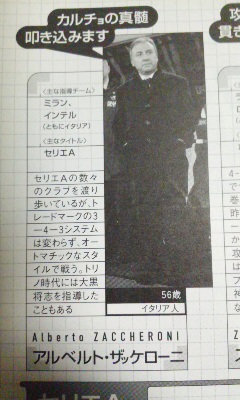 カルチョの真髄
叩き込みます
<主な指導チーム>
ミラン、
インテル
(ともにイタリア)
<主なタイトル>
セリエA
セリエAの数々
のクラブを渡り
歩いているが、ト
レードマークの3
ー4ー3システム
は変わらず、オー
トマチックなスタ
イルで戦う。トリ
ノ時代には大黒
将志を指導した
こともある
56歳
イタリア人
Alberto ZACCHERONI
アルベルト・ザッケローニ